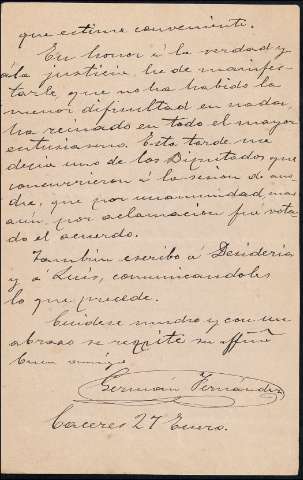 que estime conveniente.
En honor á la verdad y
á la justicia, he de manifes-
tarle que no ha habido la
menor dificultad en nada,
ha reinado en todo el mayor
entusiasmo. Esta tarde me
decia uno de los Diputados, que
concurrieron á la sesion de ano-
che, que por unanimidad, mas
aun, por aclamacion fué vota-
do el acuerdo.
Tambien escribo á Desiderio
y á Luis, comunicandoles
lo que precede.
Cuidese mucho y con un
abrazo se repite su affmo
buen amigo
German Fernández
Caceres 27 Enero.